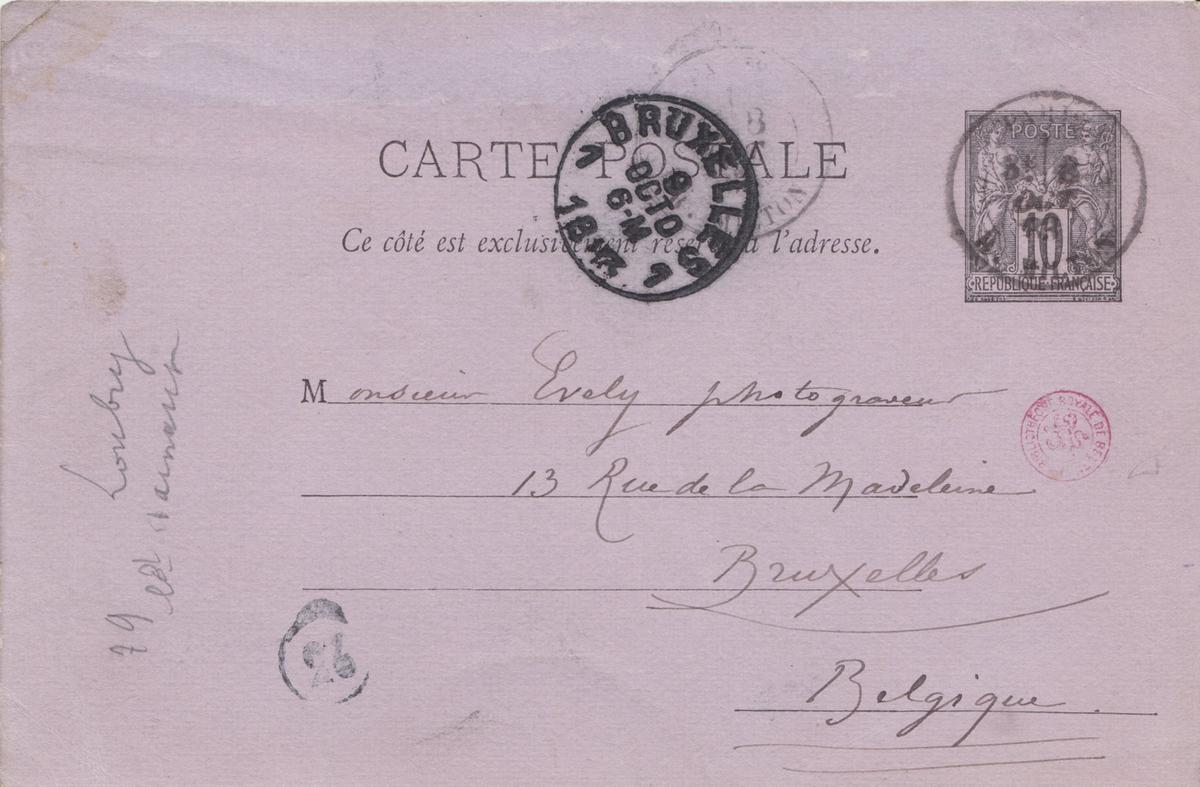 CARTE POSTALE
Ce côté est exclusivement réservé à l'adresse.
BRUXELLES
1 1
9
OCTO
6-M
POSTES
8
OCT
10
REPUBLIQUE FRANÇAISE
Monsieur Evely photograveur
13 Rue de la Madeleine
Bruxelles
Belgique
BIBLIOTHÈQUE ROYALE DE BELG
26
79
Loubry